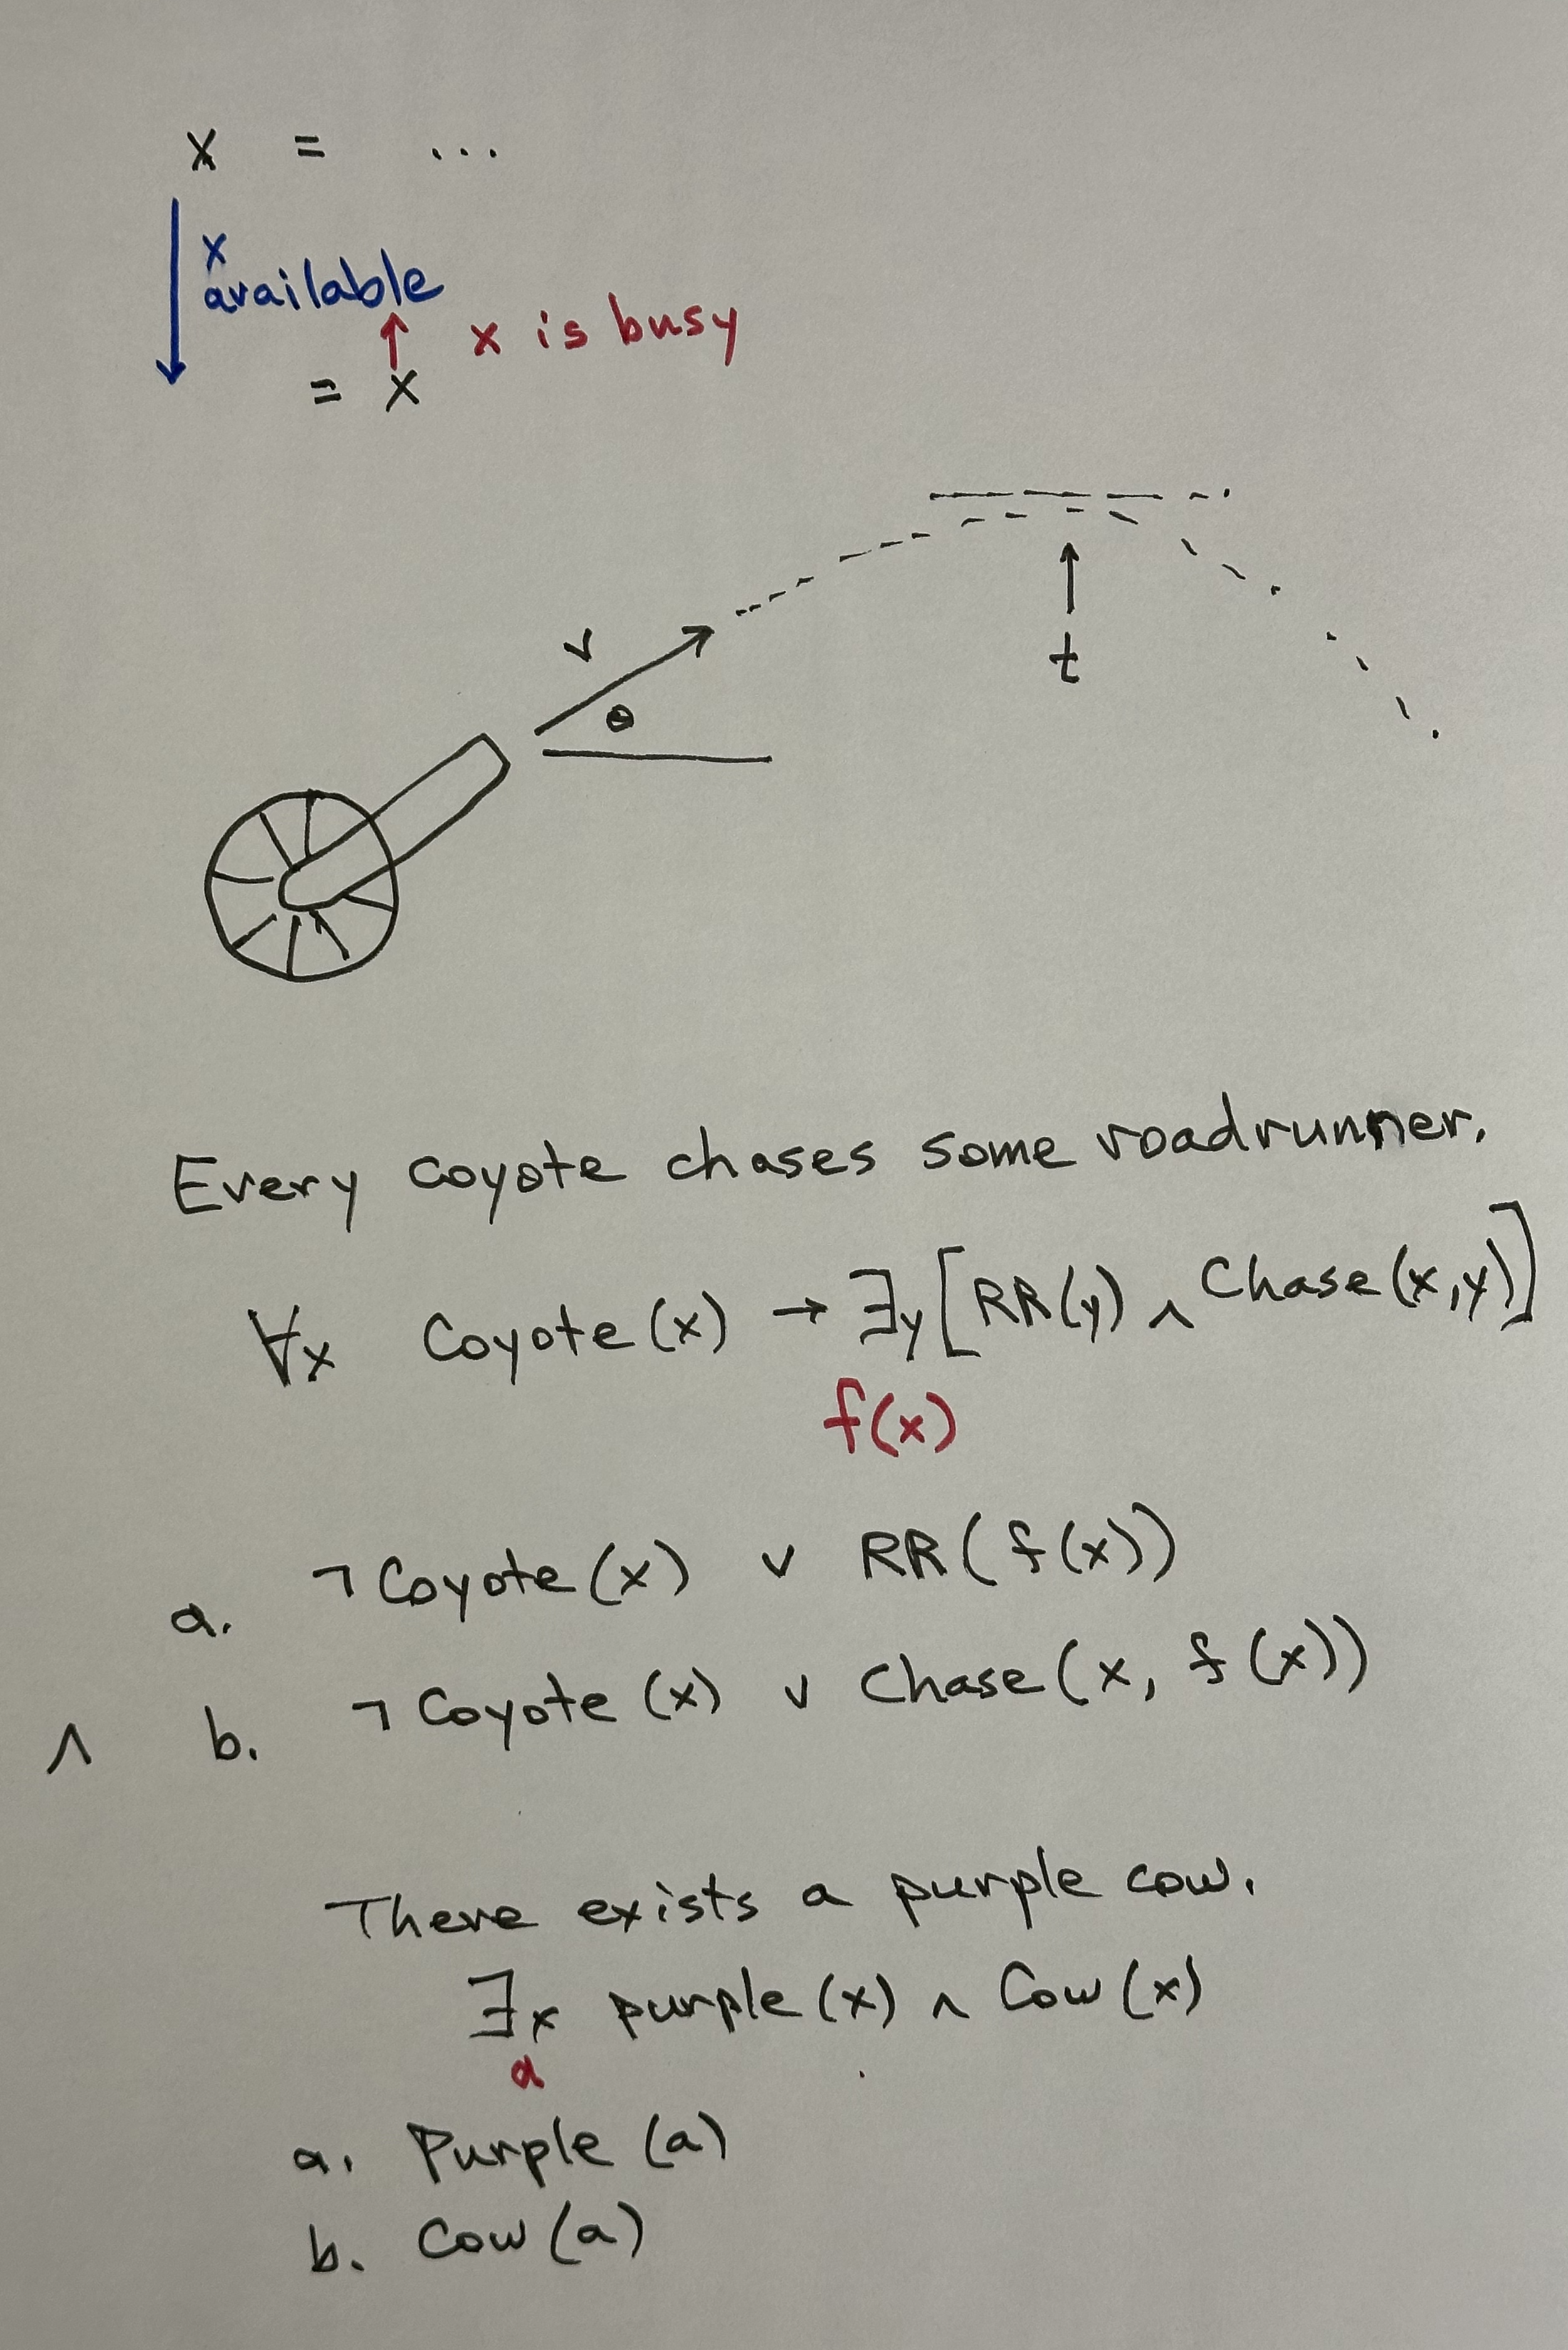 x = ...
x
available
x is busy
= x
v
θ
t
Every coyote chases some roadrunner.
∀x Coyote(x) → ∃y[RR(y) ∧ Chase(x,y)]
f(x)
a. ¬Coyote(x) ∨ RR(f(x))
∧ b. ¬Coyote(x) ∨ Chase(x, f(x))
There exists a purple cow.
∃x purple(x) ∧ Cow(x)
a
a. Purple(a)
b. Cow(a)